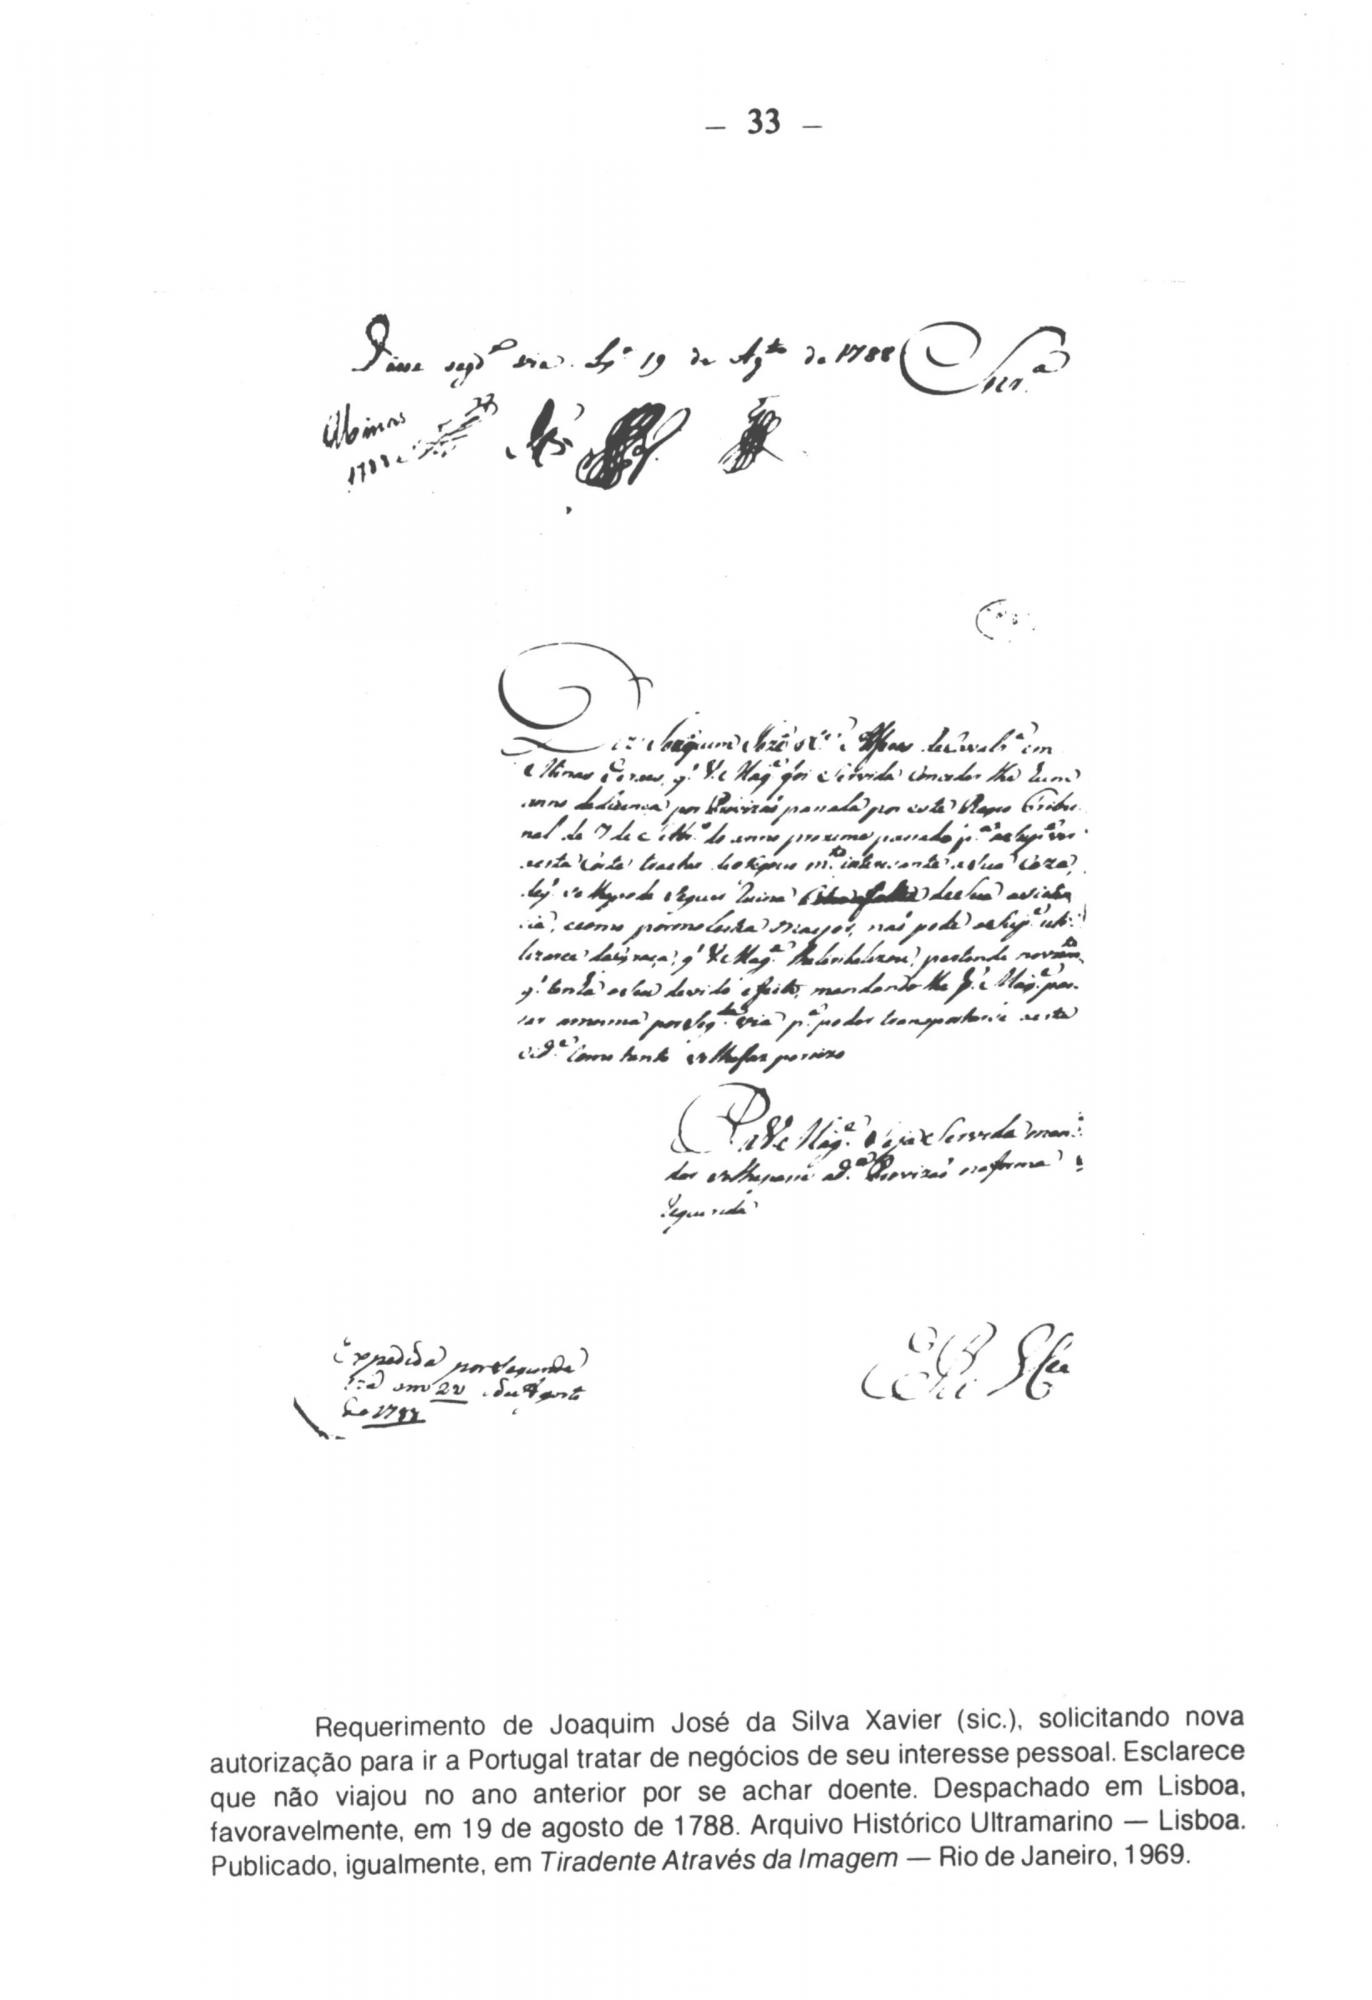 – 33 –
Passe segd.ª via. Lx.ª 19 de Agt.º de 1788
Snr.ª
Minas
1788
Diz Joaquim Joze X.er Alferes de Caval.ª em
Minas Geraes, q' V. Mag.e foi Servida conceder lhe hum
anno de licença por Provizaõ passada por este Regio Tribu-
nal de 7 de do anno proximo passado p.ª o Sup.e vir
a esta Corte tractar de negocios m.to interesantes a Sua Caza,
seguir ruina falta de Sua asisten-
cia, e como por molestia naõ pode o Sup.e uti-
lizarce da graça, q' V. Mag.e pertende
q' tenha o seu devido efeito, mandando lhe V. Mag.e pas-
sar a mesma por Seg.da via p.ª poder transportarse a esta
Cid.e
P. a V. Mag.e Seja Servida man-
dar lhe passe a d.ª Provizaõ na forma
Segunda
E R M.ce
Expedida por Segunda
via em 22 de Agosto
de 1788
Requerimento de Joaquim José da Silva Xavier (sic.), solicitando nova
autorização para ir a Portugal tratar de negócios de seu interesse pessoal. Esclarece
que não viajou no ano anterior por se achar doente. Despachado em Lisboa,
favoravelmente, em 19 de agosto de 1788. Arquivo Histórico Ultramarino — Lisboa.
Publicado, igualmente, em Tiradente Através da Imagem — Rio de Janeiro, 1969.